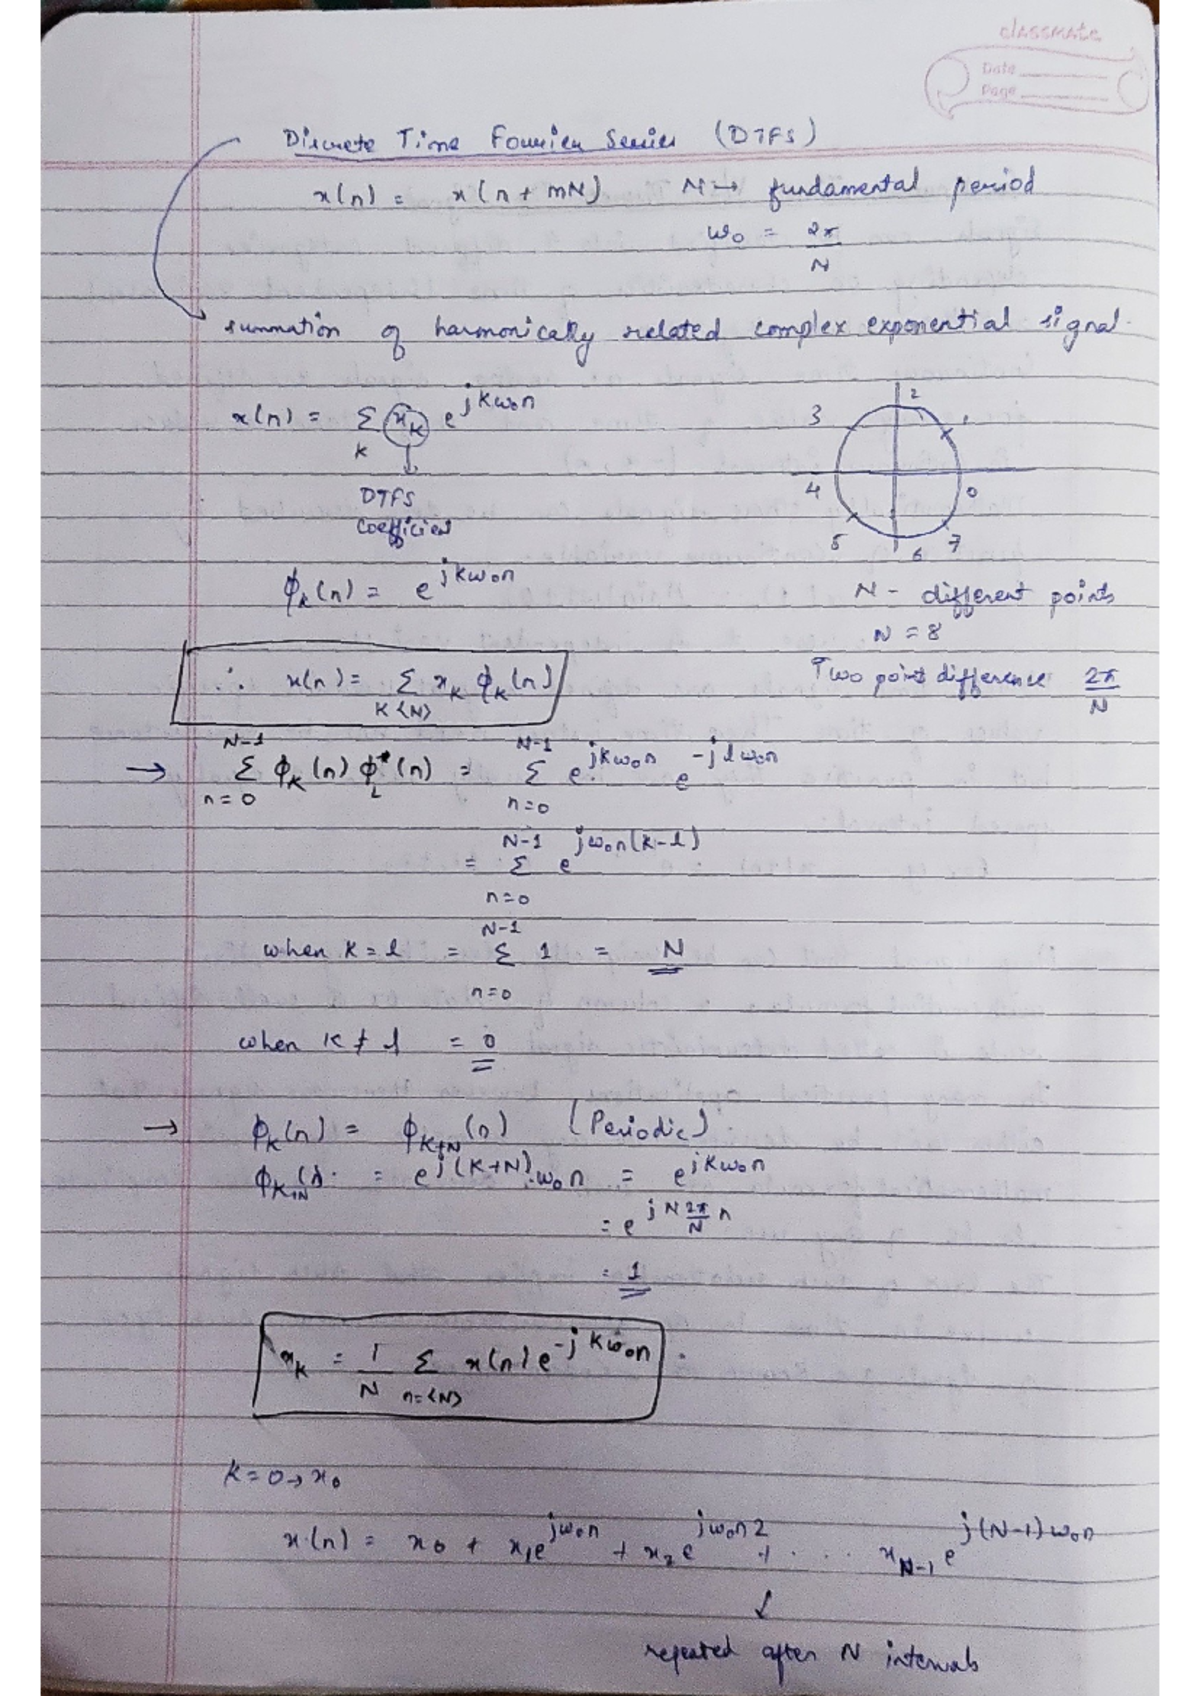 classmate
Date
Page
Discrete Time Fourier Series (DTFS)
x(n) = x(n + mN) N → fundamental period
ω₀ = 2π/N
summation of harmonically related complex exponential signal.
x(n) = Σ_k x_k e^{jkω₀n}
DTFS
coefficien
3 2 1
4 0
5 6 7
ϕ_k(n) = e^{jkω₀n}
N - different points
N = 8
∴ x(n) = Σ_{K<N>} x_k ϕ_k(n)
Two point difference 2π/N
→ Σ_{n=0}^{N-1} ϕ_k(n) ϕ*_L(n) = Σ_{n=0}^{N-1} e^{jkω₀n} e^{-jlω₀n}
= Σ_{n=0}^{N-1} e^{jω₀n(k-l)}
when k = l = Σ_{n=0}^{N-1} 1 = N
when k ≠ l = 0
→ ϕ_k(n) = ϕ_{k+N}(n) (Periodic)
ϕ_{k+N}(n) = e^{j(k+N).ω₀n} = e^{jkω₀n}
= e^{jN 2π/N n}
= 1
x_k = 1/N Σ_{n=<N>} x(n) e^{-jkω₀n}.
k = 0 → x₀
x(n) = x₀ + x₁e^{jω₀n} + x₂e^{jω₀n2} + . . . . x_{N-1}e^{j(N-1)ω₀n}
↓
repeated after N intervals